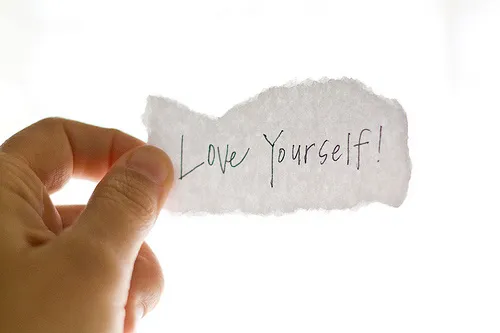 Love Yourself!